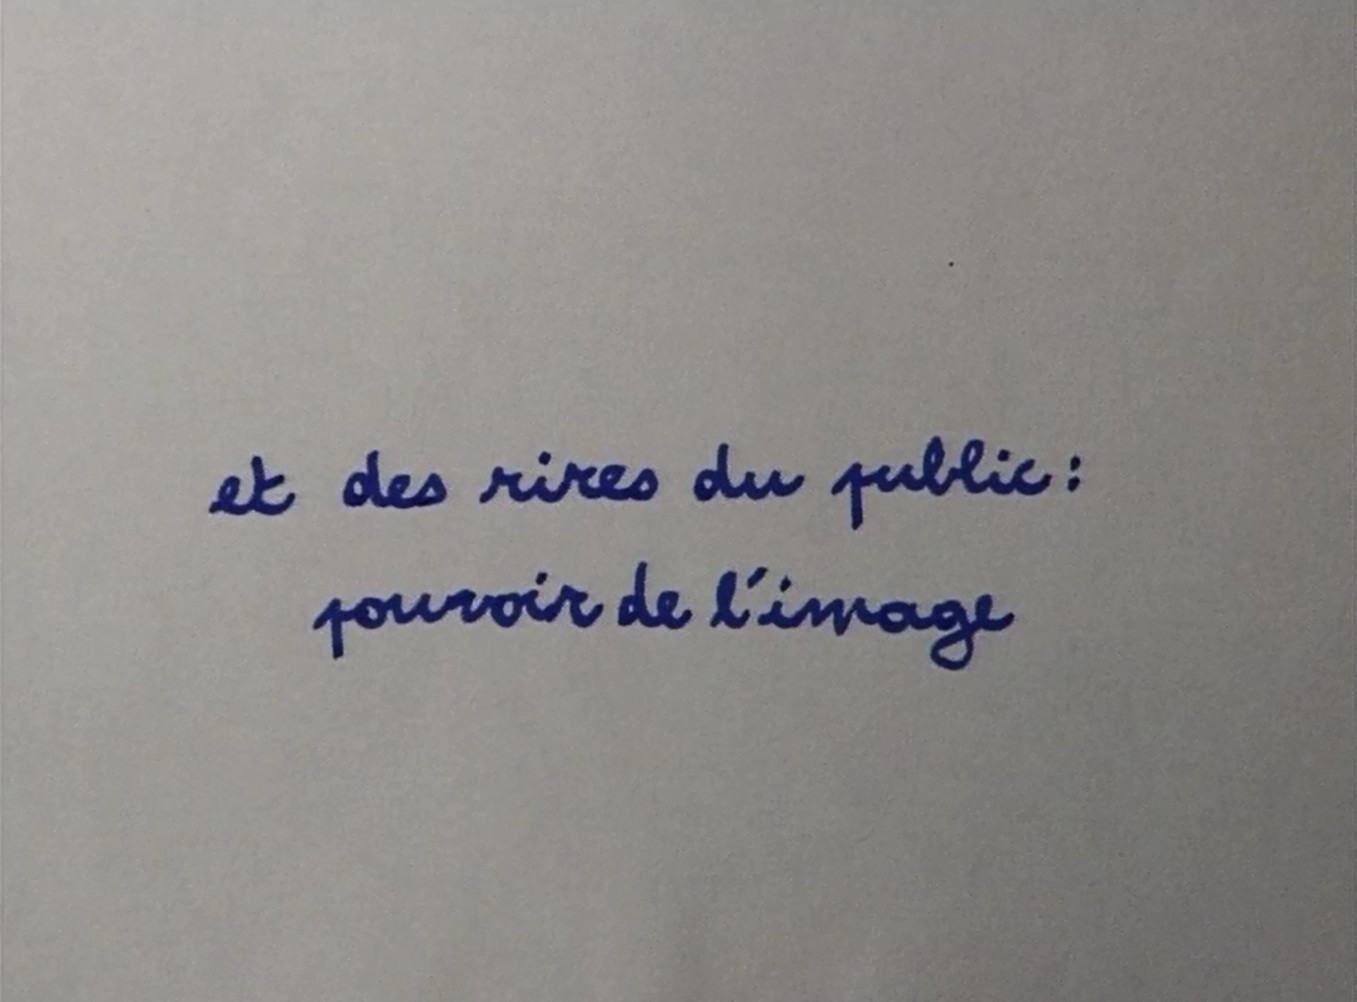 et des rires du public :
pouvoir de l'image